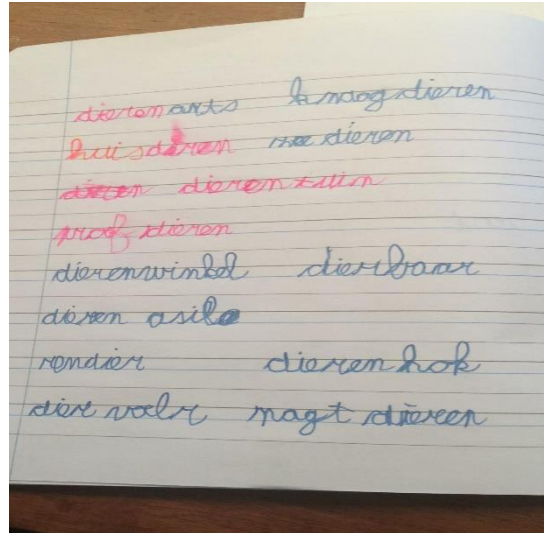 dierenarts knaagdieren
huisdieren zeedieren
dierentuin
proefdieren
dierenwinkel dierbaar
dieren asiel
rendier dierenhok
magt dieren